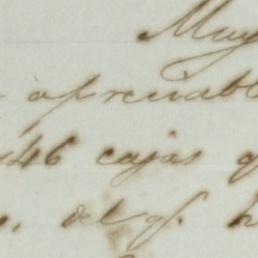 Muy
apreciabl
46 cajas q
del q.